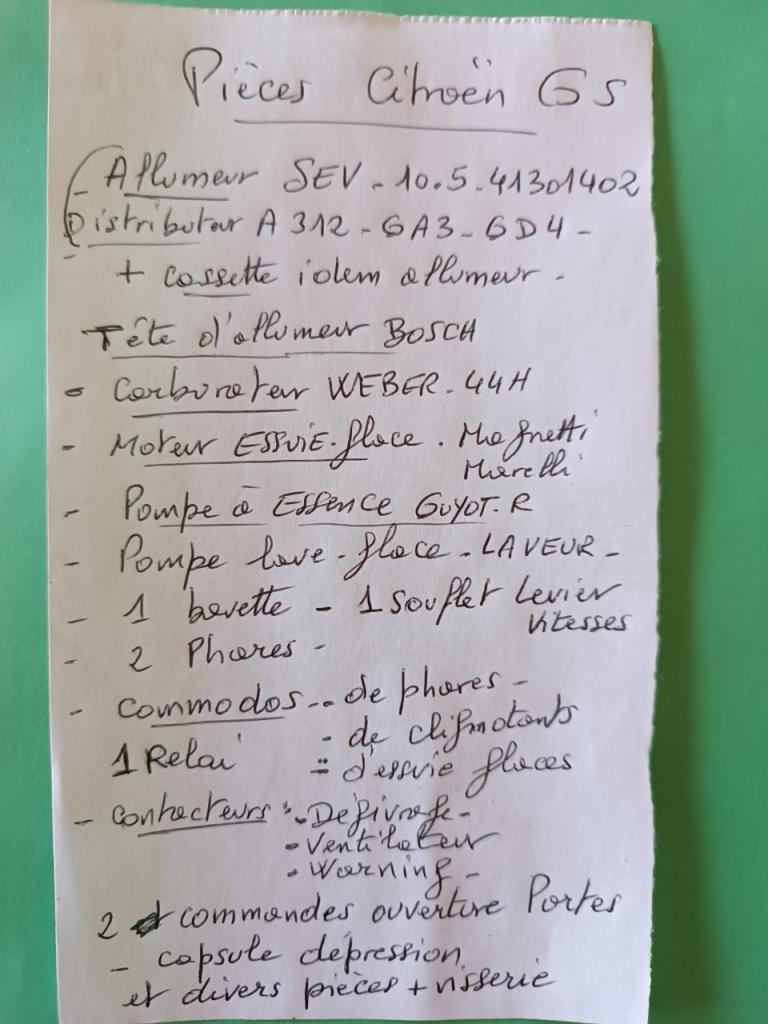 Pièces Citroën GS
- Allumeur SEV - 10.5.41301402
Distributeur A 312 - GA3 - GD4 -
+ cassette idem allumeur -
Tête d'allumeur BOSCH
- Carburateur WEBER - 44H
- Moteur ESSUIE-glace. Magnetti
Marelli
- Pompe à Essence GUYOT. R
- Pompe lave-glace - LAVEUR -
- 1 bavette - 1 Soufflet Levier
Vitesses
- 2 Phares -
- Commodos -- de phares -
- de clignotants
1 Relai = d'essuie glaces
- Contacteurs : - Dégivrage -
• Ventilateur
• Warning -
2 commandes ouverture Portes
- capsule dépression
et divers pièces + visserie